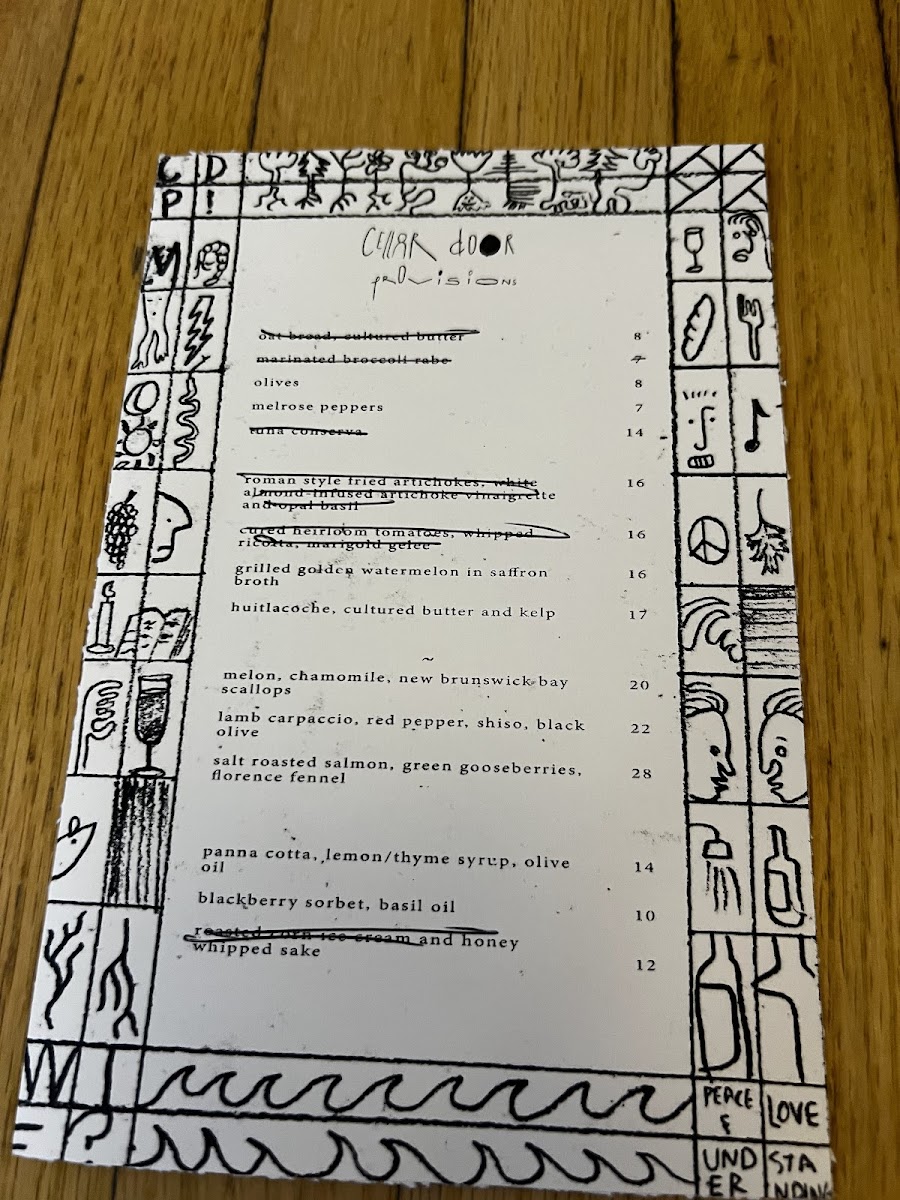 C D
P !
CEllAR dOOR
PROVISIONS
oat bread, cultured butter 8
marinated broccoli rabe 7
olives 8
melrose peppers 7
tuna conserva 14
roman style fried artichokes, white 16
almond-infused artichoke vinaigrette
and opal basil
cured heirloom tomatoes, whipped 16
ricotta, marigold gelee
grilled golden watermelon in saffron 16
broth
huitlacoche, cultured butter and kelp 17
~
melon, chamomile, new brunswick bay 20
scallops
lamb carpaccio, red pepper, shiso, black 22
olive
salt roasted salmon, green gooseberries, 28
florence fennel
panna cotta, lemon/thyme syrup, olive 14
oil
blackberry sorbet, basil oil 10
roasted corn ice cream and honey
whipped sake 12
PEACE
&
LOVE
UND
ER
STA
NDING